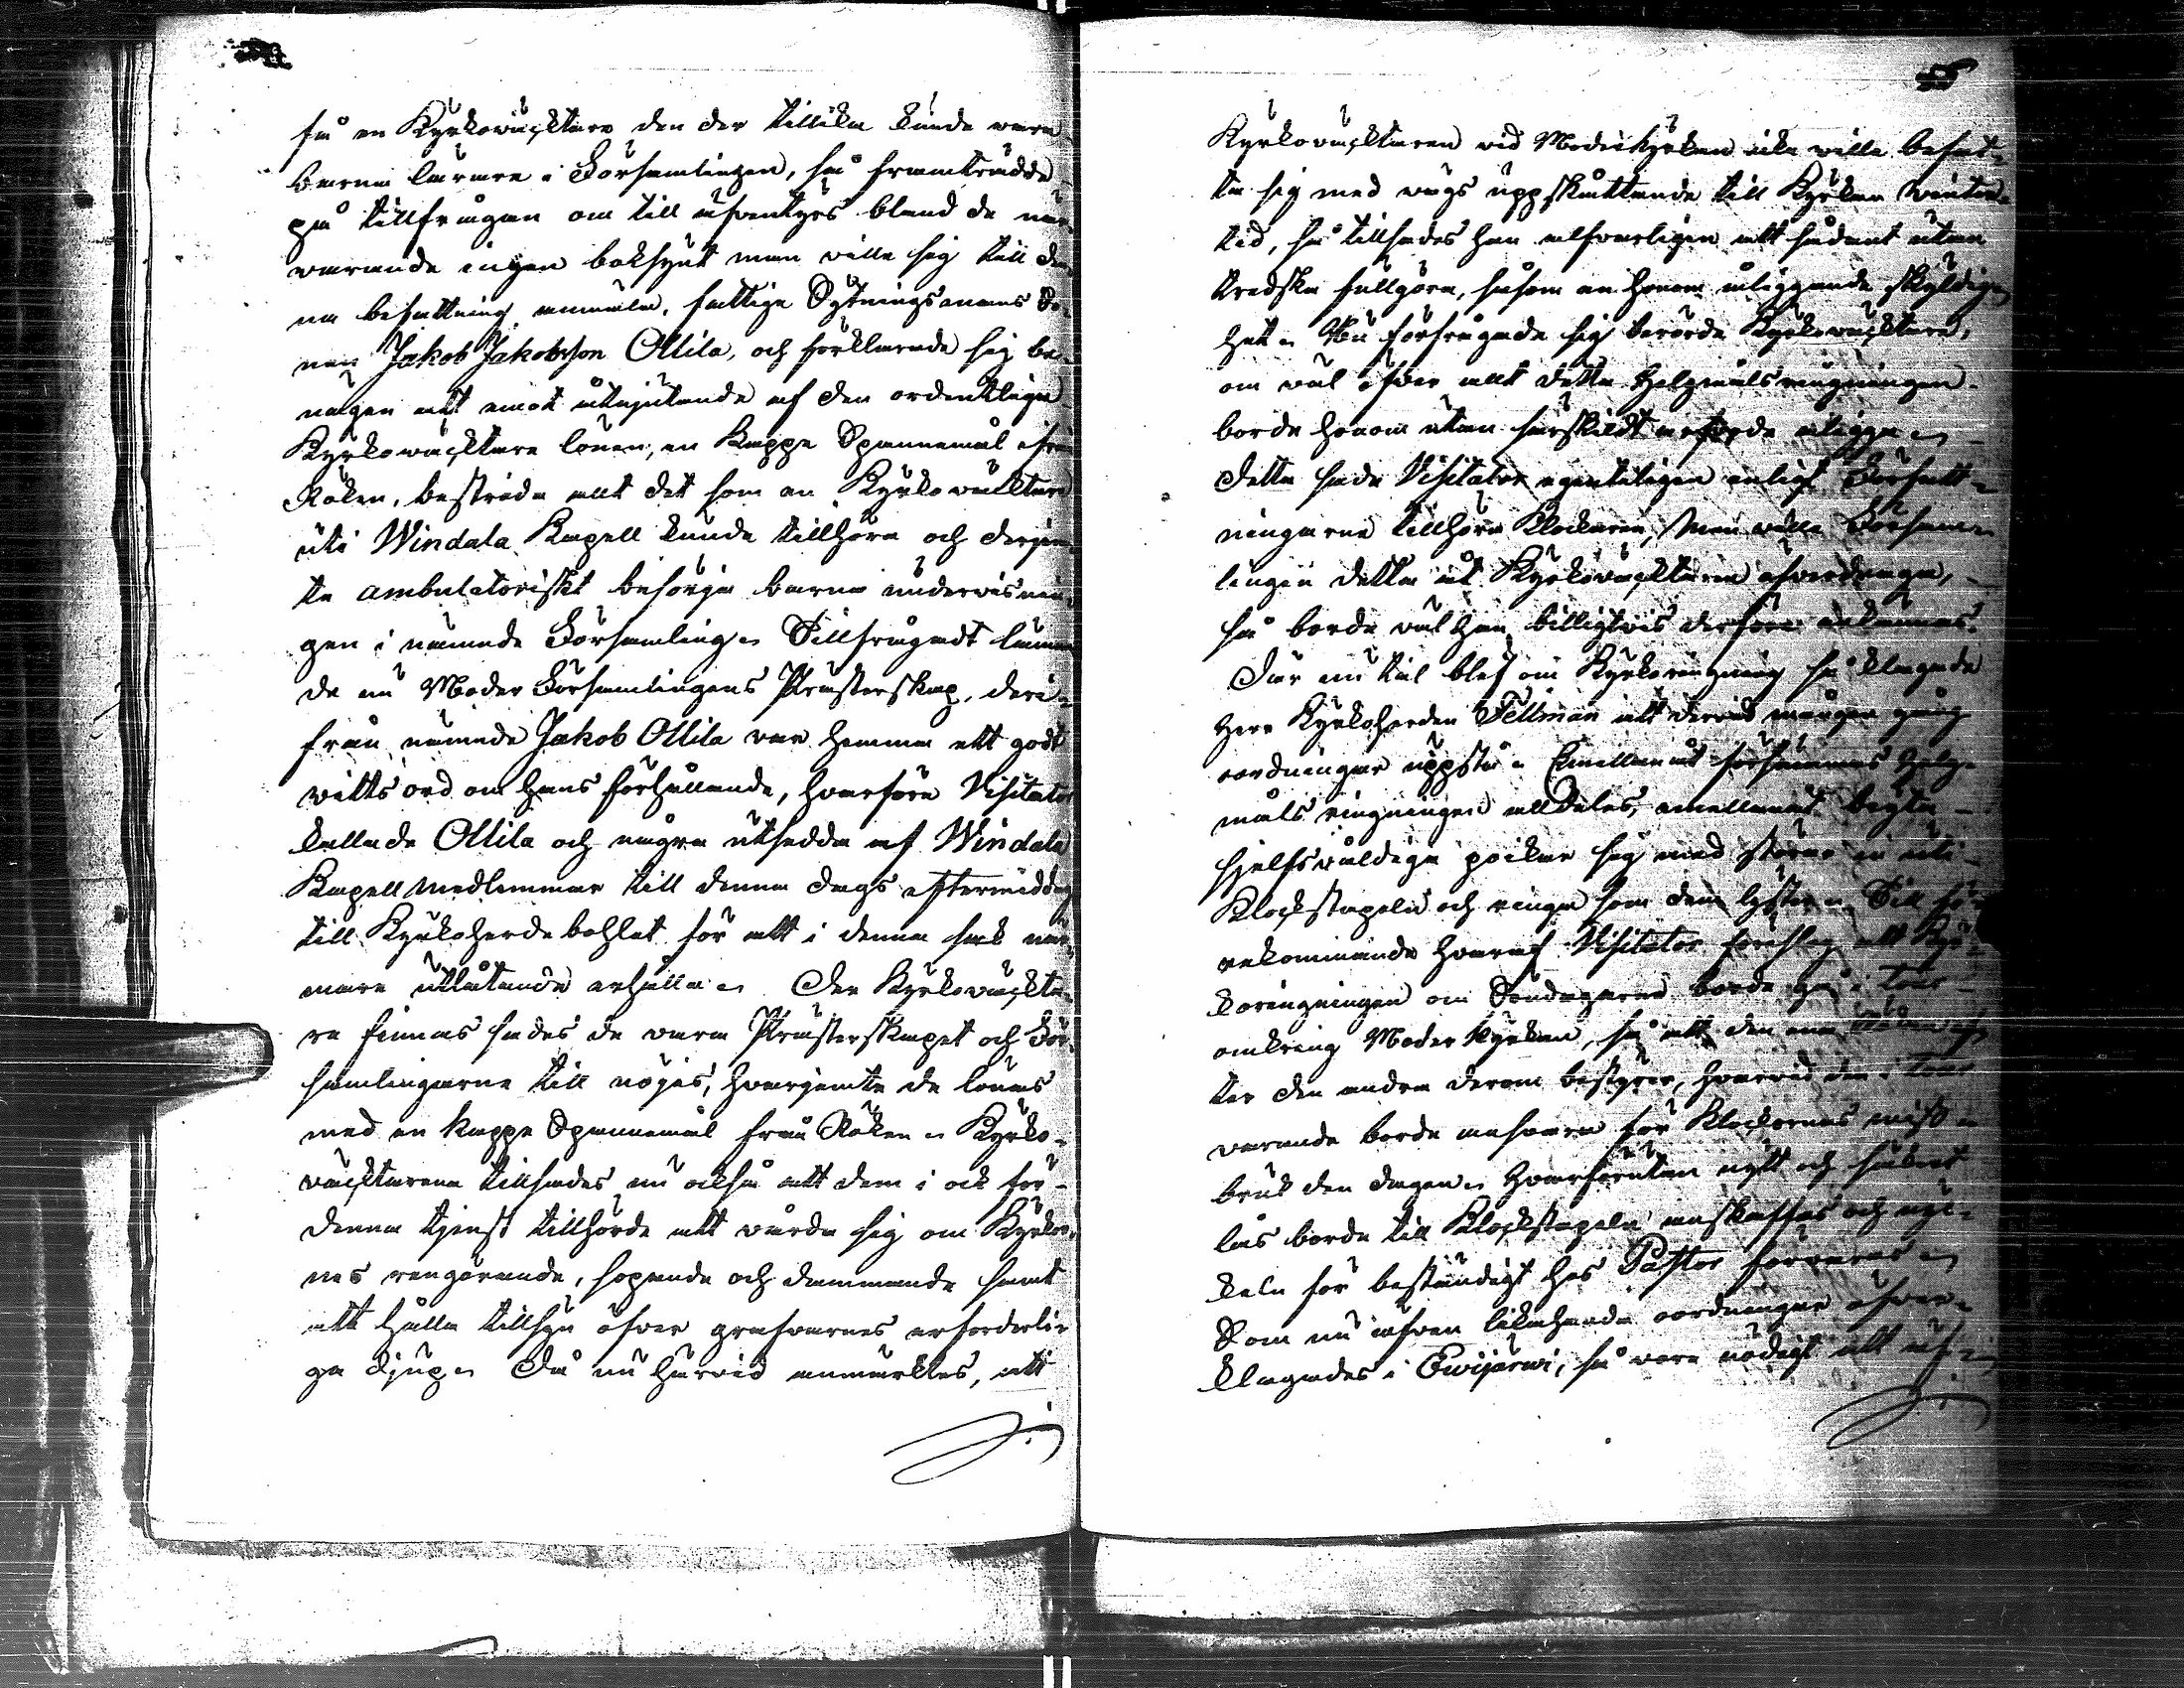 få en Kyrkowäcktare den der tillika kunde wara
barna lärare i Församlingen, så framträdde
på tillfrågan om till äfwentyrs bland de när-
warande ingen boksynt man wille sig till den-
na befattning anmäla, fattige Sytningsmans So-
nen Jakob Jakobsson Ollila, och förklarade sig be-
nägen att emot åtnjutande af den ordentliga
Kyrkowäcktare lönen, en Kappe Spannemål ifrån
Röken, bestrida allt det som en Kyrkowäcktare
uti Windala Kapell kunde tillhöra och derjem-
te ambulatoriskt besörja barna underwisnin-
gen i nämnde Församling. Tillfrågadt lämna-
de nu Moder Församlingens Prästerskap, deri-
från nämnde Jakob Ollila war hemma ett godt
witts ord om hans förhållande, hwarföre Visitator
kallade Ollila och några utsedda af Windala
Kapell medlemmar till denna dags eftermiddag
till Kyrkoherdebohlet för att i denna sak när-
mare utlåtande erhålla. Der Kyrkowäckta-
re finnas sades de wara Prästerskapet och För-
samlingarne till nöjes, hwarjemte de lönas
med en kappe Spannemål från Röken. Kyrko-
wäcktarena tillsades nu också att dem i ock för
denna tjenst tillhörde att wårda sig om Kyrkor-
nes rengörande, sopande och dammande samt
att hålla tillsyn öfwer grafwarnes erforderli-
ga djup. Då nu härwid anmärktes, att
56
Kyrkowäcktaren wid Moderkyrkan icke wille befat-
ta sig med wägs uppskåttande till Kyrkan winter-
tid, så tillsades han alfwarligen att sådant utan
tredska fullgöra, såsom en honom åliggande skyldig-
het. Nu förfrågade sig berörde Kyrkowäcktare,
om wäl öfwer allt detta Helgmålsringningen
borde honom utan särskildt arfode åligga.
Detta sade Visitator egenteligen enligt Författ-
ningarne tillhöra Klockaren, Men wille Försam-
lingen detta åt Kyrkowäcktaren öfwerdraga,
så borde wäl han billigtwis derföre erkännas.
Där nu tal blef om Kyrkoringning så klagade
Herr Kyrkoherden Fellman att derwid mången gång
oordningar uppstå. Emellanåt försummas helg-
måls ringningen alldeles, emellanåt begifwa
sjelfswåldige poikar sig med större i uti
Klockstapeln och ringa som dem lyster. Till för-
ekommande hwaraf Visitator föreslog att Kyr-
koringningen om Söndagarne borde gå i tour
omkring Moder kyrkan, så att den ena Röken ef-
ter den andra derom bestyrer, hwarwid den i tour
warande borde answara för Klockornas miss-
bruk den dagen. Hwarförutan nytt och säkert
lås borde till Klockstapeln anskaffas och nyc-
keln för beständigt hos Pastor förwaras.
Som nu äfwen likahanda oordningar öfwer-
klagades i Ewijärwi, så ware nödigt att äf-